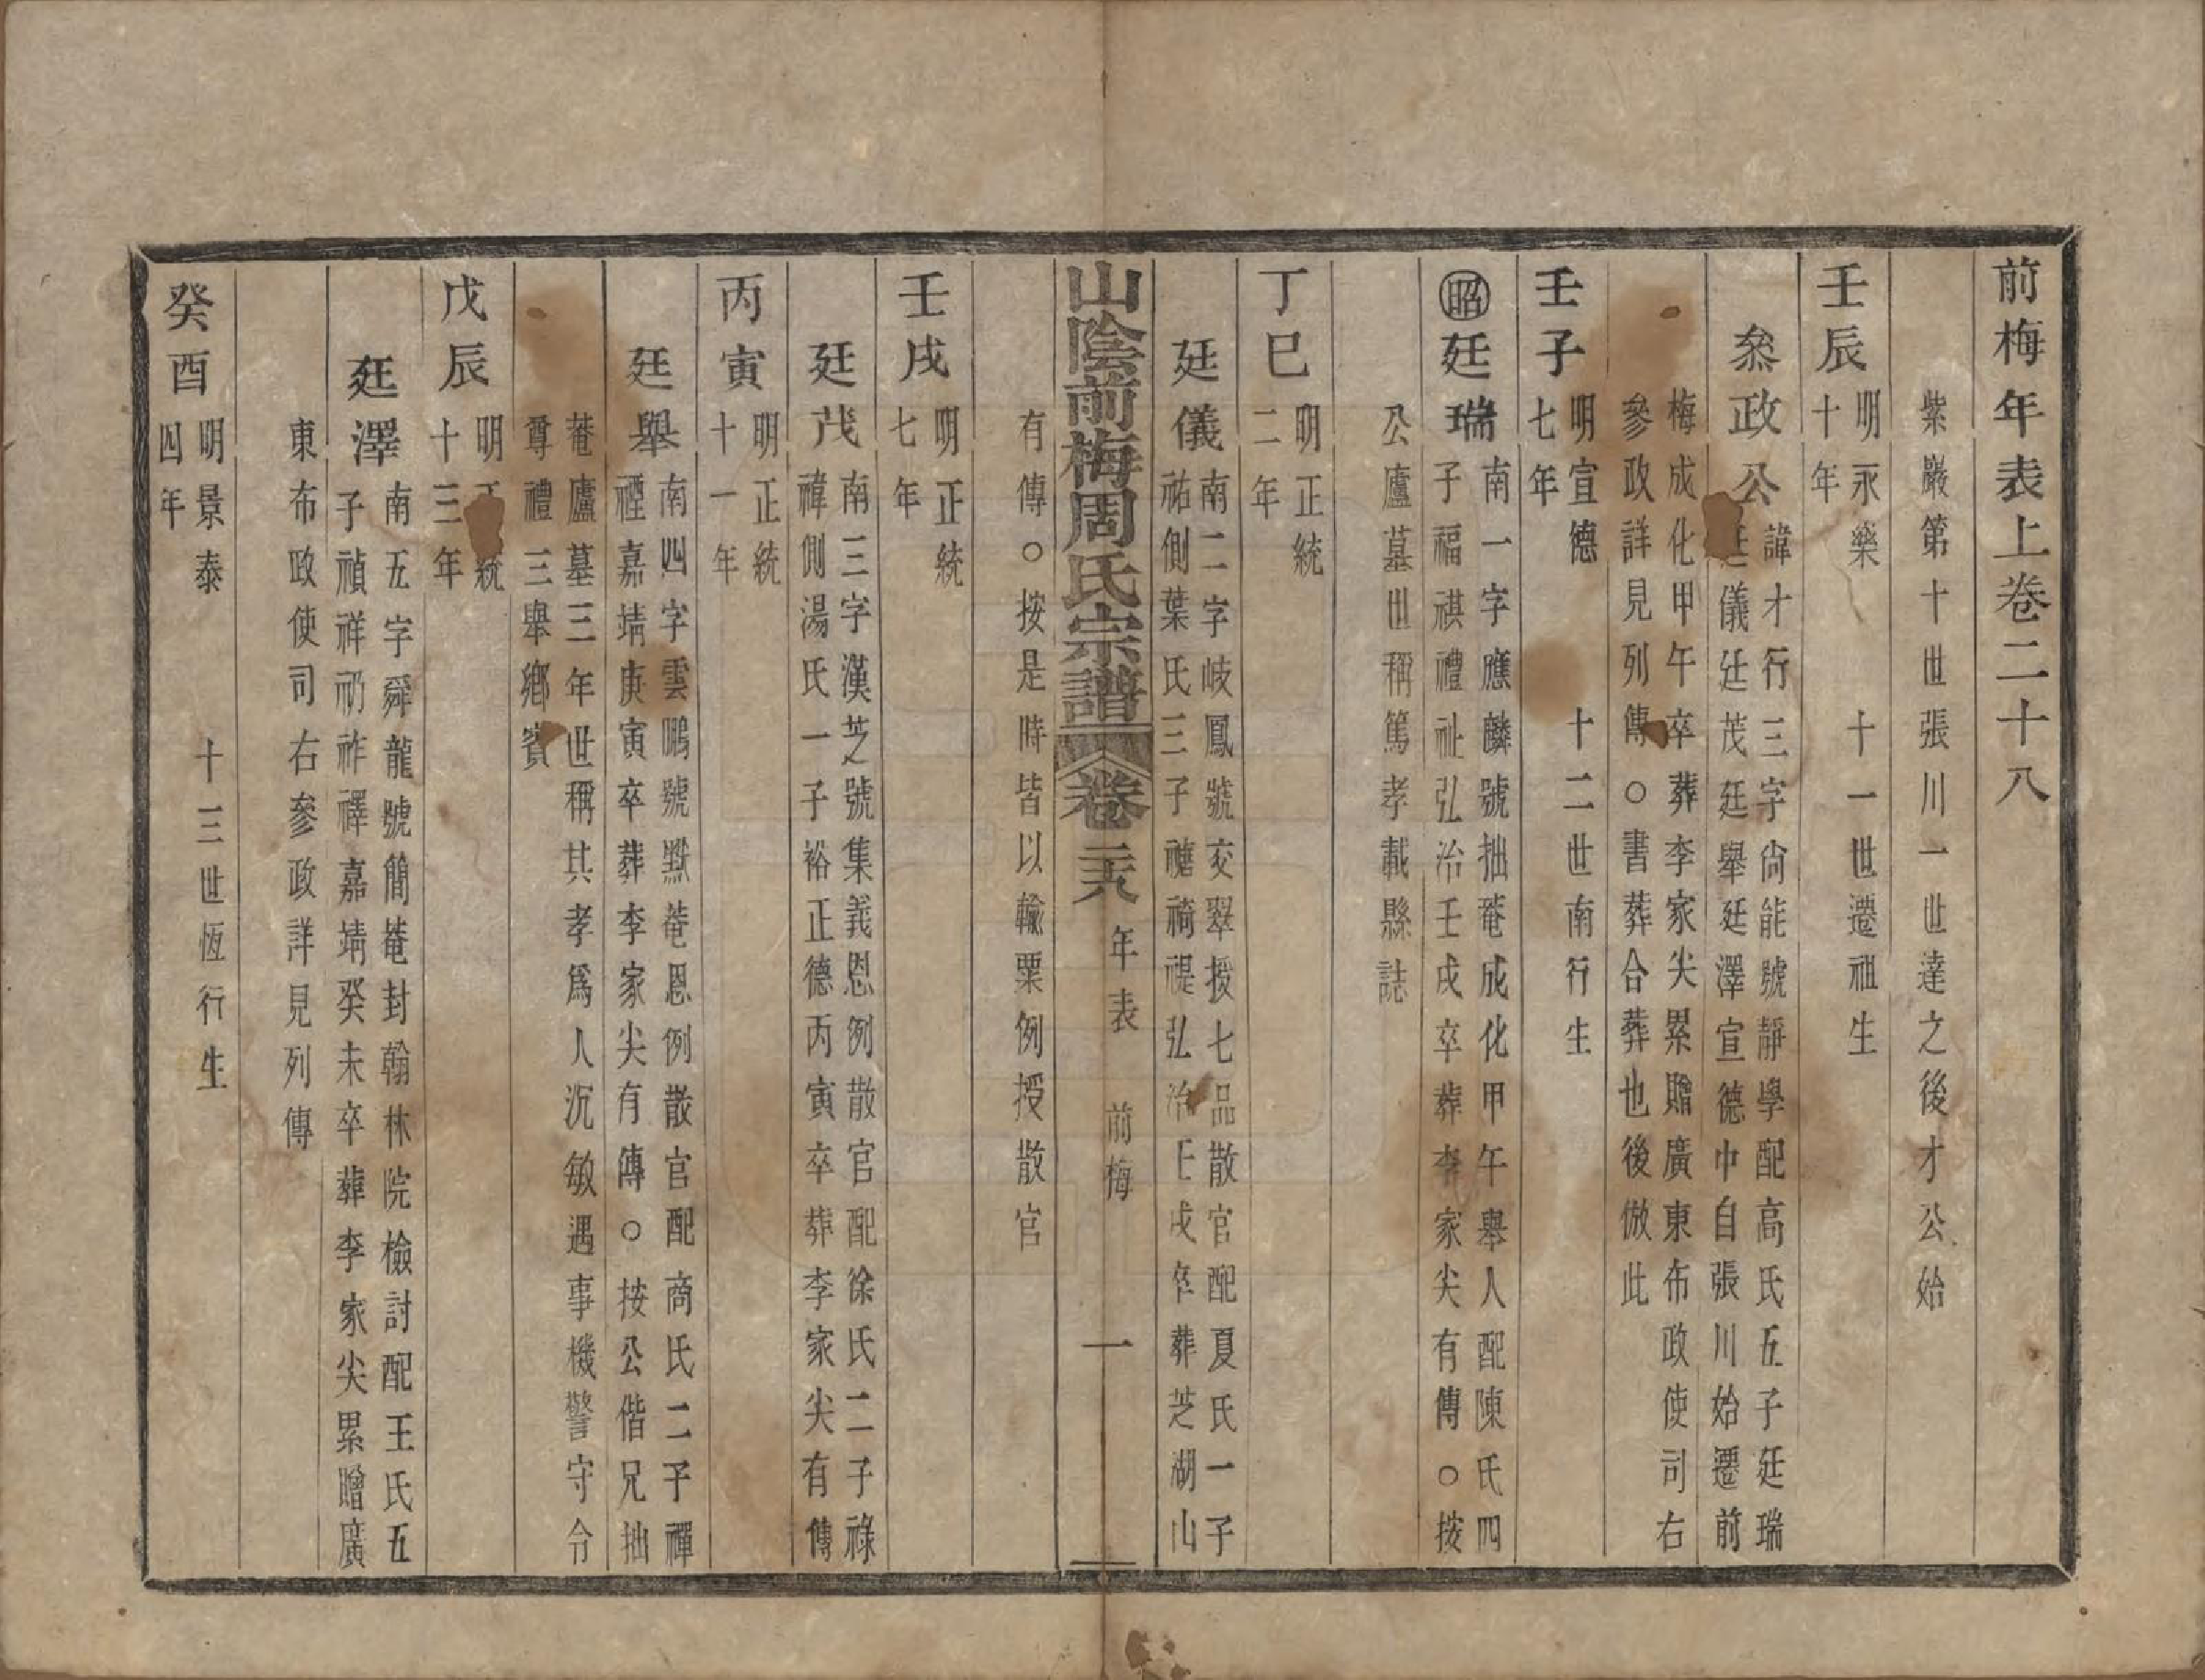 前梅年表上卷二十八
紫巖第十世張川一世達之後才公始
壬辰
明永樂
十年
十一世遷祖生
叅政公
諱才行三字尙能號靜學配高氏五子廷瑞
廷儀廷茂廷舉廷澤宣德中自張川始遷前
梅成化甲午卒葬李家尖累贈廣東布政使司右
參政詳見列傳○書葬合葬也後倣此
壬子
明宣德
七年
十二世南行生
昭
廷瑞
南一字應麟號拙菴成化甲午舉人配陳氏四
子福祺禮祉弘治壬戌卒葬李家尖有傳○按
公廬墓世稱篤孝載縣誌
丁巳
明正統
二年
廷儀
南二字岐鳳號交翠授七品散官配夏氏一子
祐側葉氏三子禟禕禔弘治壬戌卒葬芝湖山
山陰前梅周氏宗譜
卷二十八
年表
前梅
一
有傳○按是時皆以輸粟例授散官
壬戌
明正統
七年
廷茂
南三字漢芝號集義恩例散官配徐氏二子祿
禕側湯氏一子裕正德丙寅卒葬李家尖有傳
丙寅
明正統
十一年
廷舉
南四字雲鵬號㸃菴恩例散官配商氏二子禪
禋嘉靖庚寅卒葬李家尖有傳○按公偕兄拙
菴廬墓三年世稱其孝爲人沉敏遇事機警守分
尊禮三舉鄉賓
戊辰
明正統
十三年
廷澤
南五字舜龍號簡菴封翰林院檢討配王氏五
子禎祥礽祚禪嘉靖癸未卒葬李家尖累贈廣
東布政使司右參政詳見列傳
癸酉
明景泰
四年
十三世恆行生